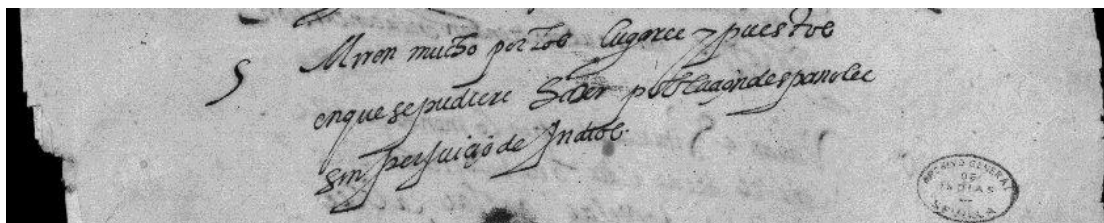 5 Miren mucho por los lugares y puestos
en que se pudiere hacer poblaçion despañoles
sin perjuiçio de Indios.
ARCHIVO GENERAL
DE
INDIAS
SEVILLA